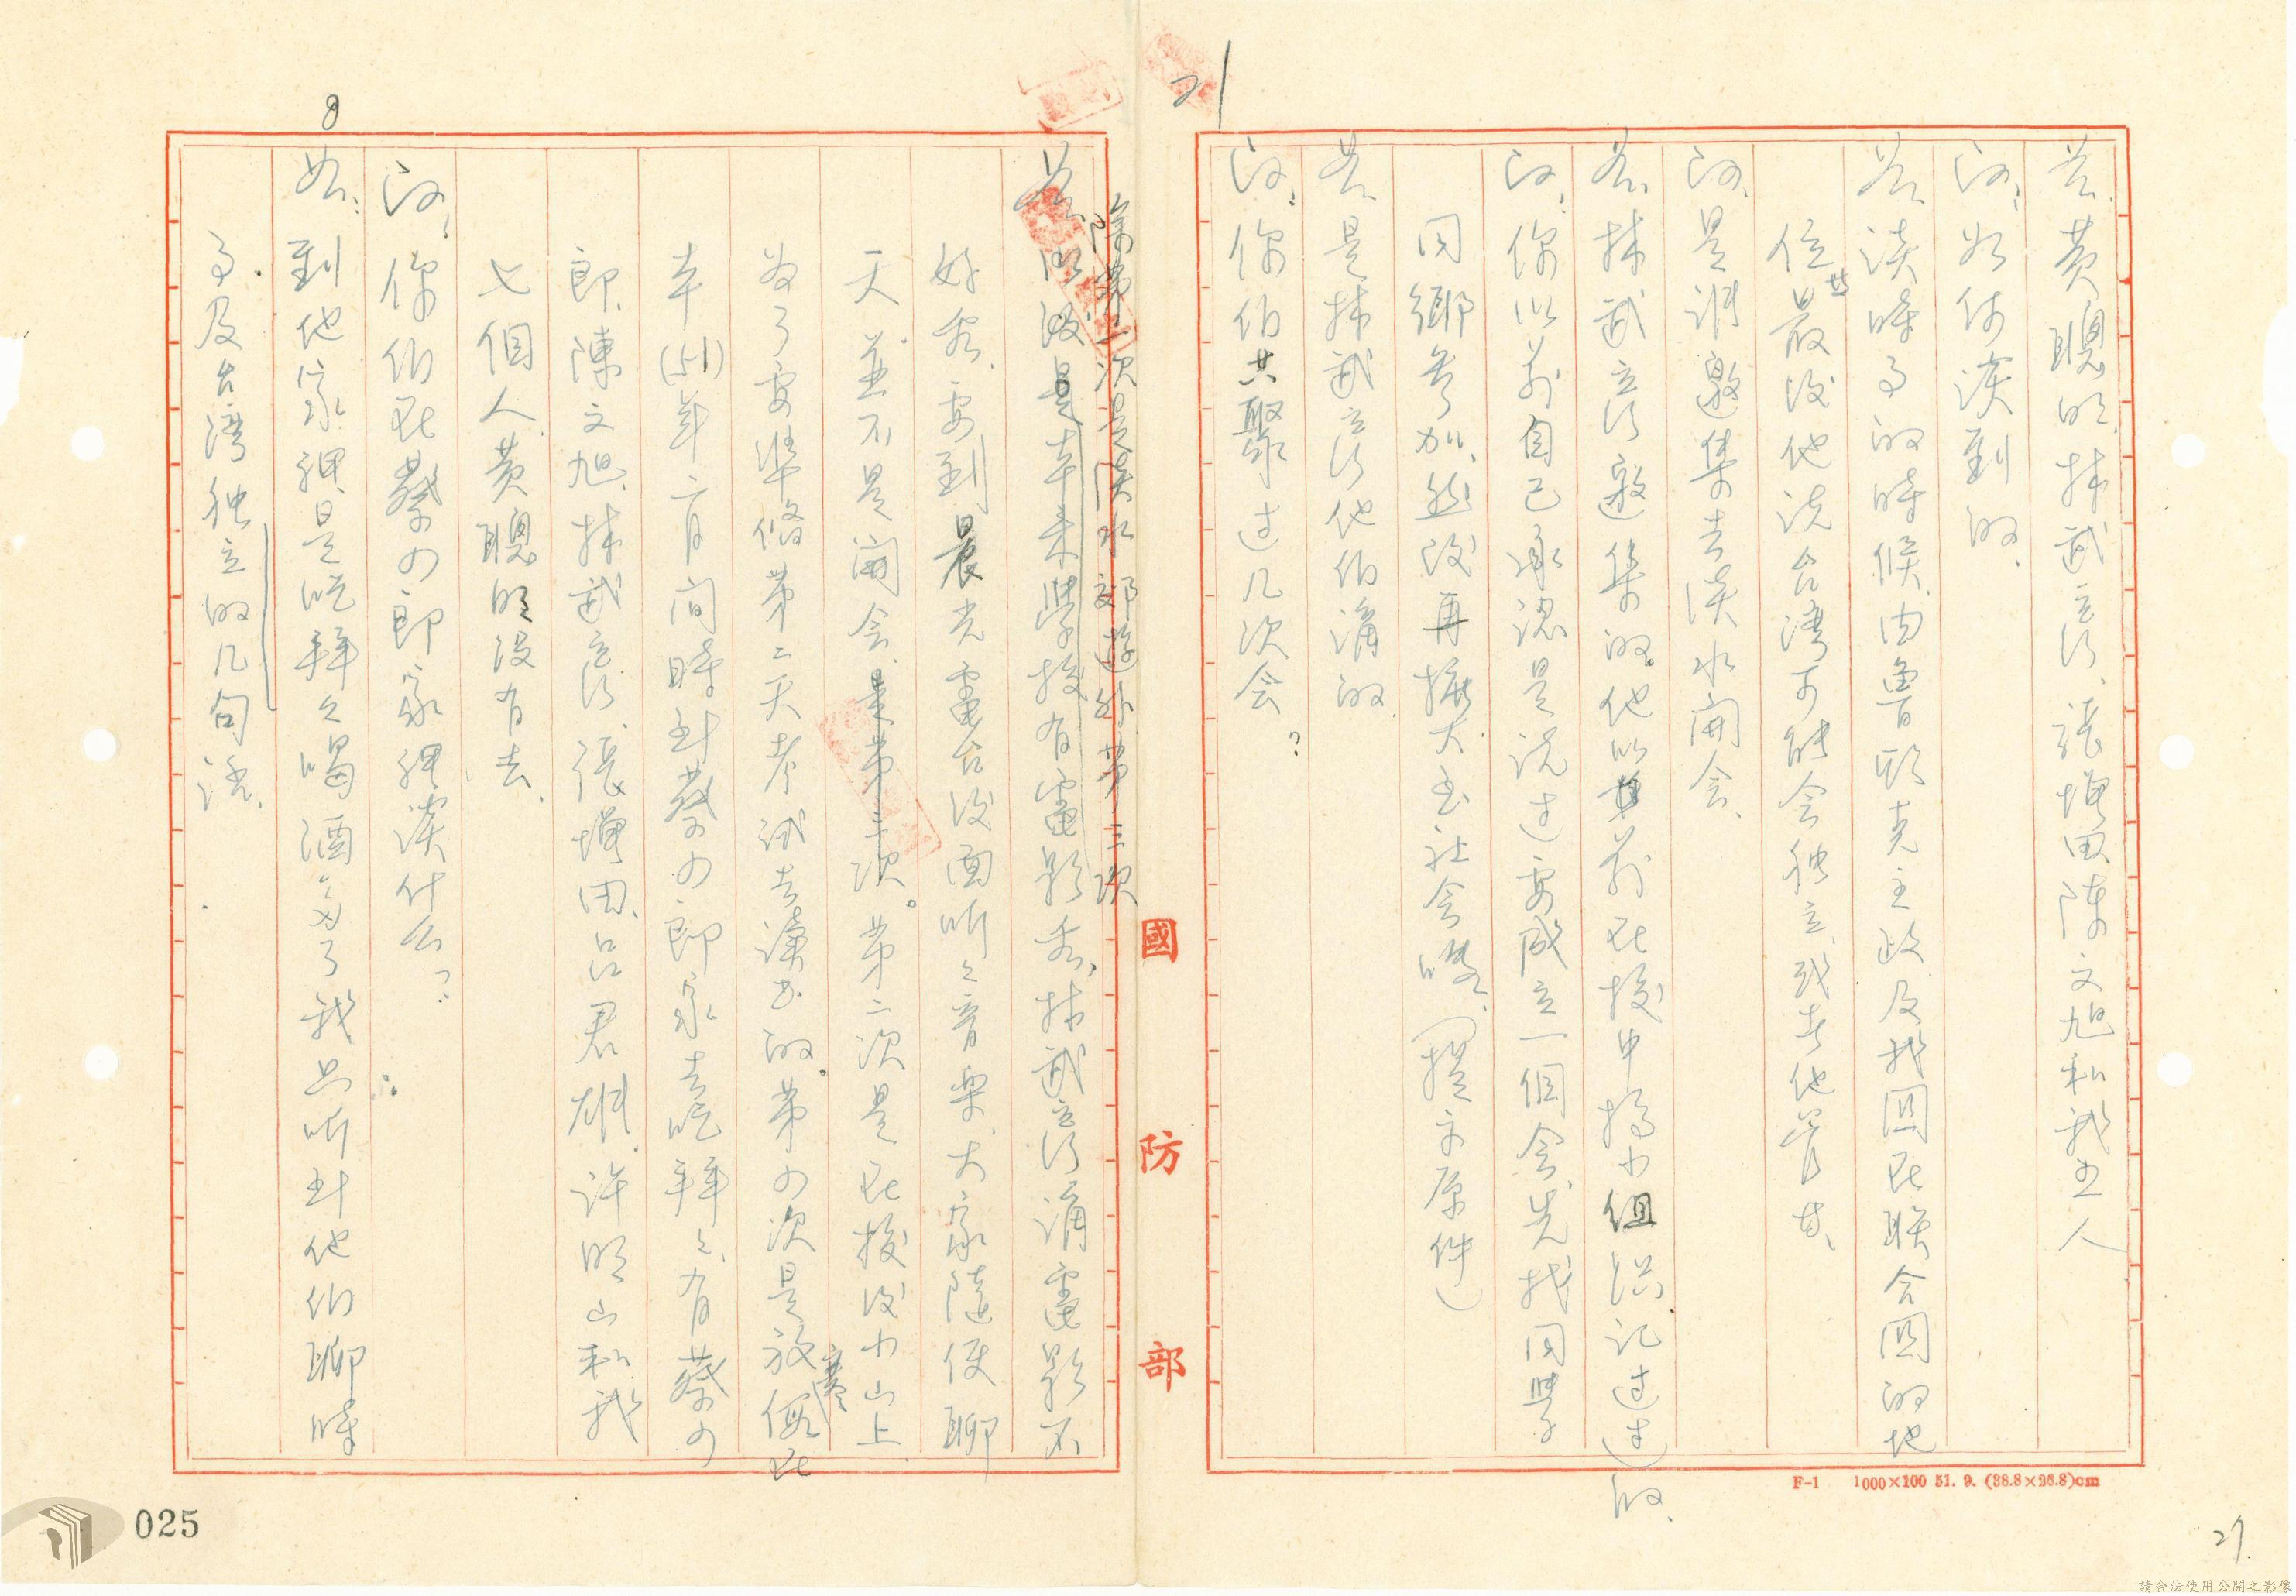 21
答:黃聰明、林武彥、張增田、陳文旭和我五人
問:如何談到的.
答:談時事的時候,由魯
位其最後他說台湾可能会独立,或者他管甘、
問:是誰邀集去淡水開会、
答:林武彥邀集的。他以前在校中搞小组織記过过的.
問:你以前自己承認是说过要成立一個会先找同學
同鄉參加,然後再擴大至社会嗳、(提示原件)
答:是林武彥他们講的
問:你们共聚过几次会?
除第一次是淡水郊遊外第三次
答:以後是本來學校有電影看,林武彥講電影不
好看,要到晨光電台後面听々音樂,大家隨便聊
天,並不是開会,是第三次。第二次是在校後小山上
為了要準俻第二天考試去讀书的。第四次是放寒假在
本(51)年二月间時到蔡四郎家去吃拜々,有蔡四
郎、陳文旭、林武彥、張增田、呂君雄、許明山和我
七個人,黃聰明沒有去、
問:你们在蔡四郎家裡談什么?
8
答:到他家裡是吃拜々喝酒,我只听到他们聊時
事及台湾独立的几句話.
國防部
F-1 1000×100 51. 9. (38.8×26.8)cm
025
27.
請合法使用公開之影像